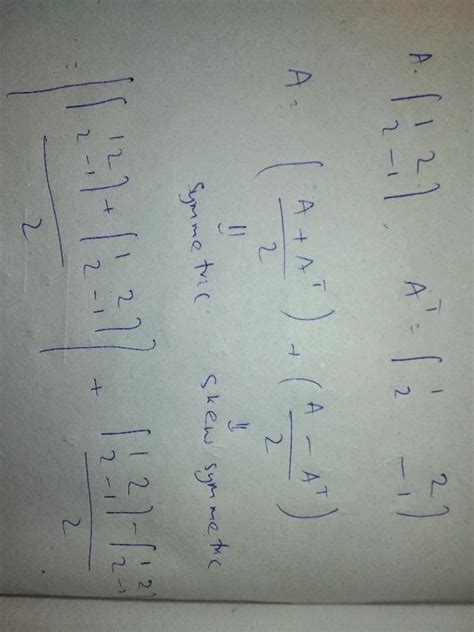 A = [1 2 2 -1], Aᵀ = [1 2 2 -1]
A = (A + Aᵀ / 2) + (A - Aᵀ / 2)
symmetric skew symmetric
[[1 2 2 -1] + [1 2 2 -1] / 2] + [1 2 2 -1] - [1 2 2 -1] / 2